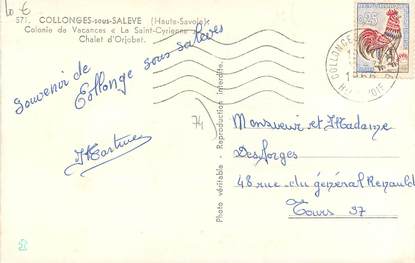 10 €
571. COLLONGES-sous-SALEVE (Haute-Savoie)
Colonie de Vacances « La Saint-Cyrienne »
Chalet d'Orjobet.
Souvenir de
Collonge sous Salèves
74
Photo véritable - Reproduction interdite.
0,25
COLLONGES
Monsieur et Madame
Desforges
48 rue du général Renault
Tours 37